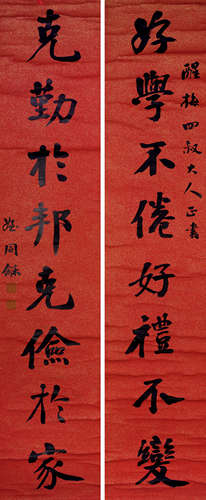 醒梅四叔大人正書
好學不倦好禮不變
克勤於邦克儉於家
翁同龢